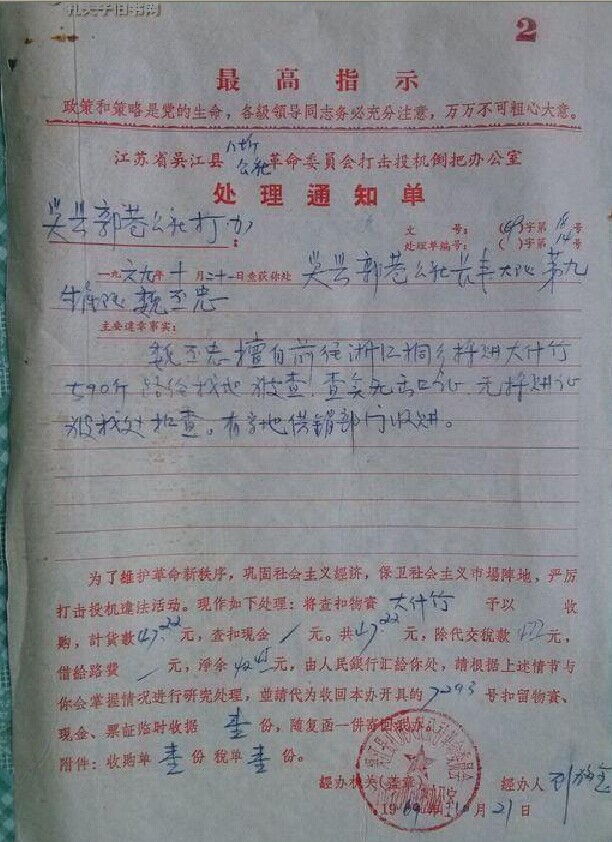 孔夫子旧书网
2
最高指示
政策和策略是党的生命,各級領导同志务必充分注意,万万不可粗心大意。
江苏省吴江县八坼公社革命委員会打击投机倒把办公室
处理通知单
吴县郭巷公社打办:
文号:(69)字第15号
处理单编号:( )字第14号
一九六九年十月二十一日查获你处 吴县郭巷公社长丰大队第九
生产队魏丕忠
主要违章事实:
魏丕忠擅自前往浙江桐乡採购大什竹
590斤 路经我处被查,查实无出口证,无採购证
被我处扣查。有当地供销部门收购。
为了維护革命新秩序,巩固社会主义經济,保卫社会主义市場陣地、严厉
打击投机違法活动。现作如下处理:将查扣物資 大什竹 予以 收
购,計貨款47.22元,查扣现金/元。共47.22元,除代交稅款4.72元,
借給路費/元,淨余元,由人民銀行汇給你处,請根据上述情节与
你会掌握情况进行研究处理,並請代为收回本办开具的7293号扣留物資、
现金、票証临时收据 壹 份,随复函一併寄回我办。
附件:收购单 壹 份 稅单 壹 份。
經办机关(盖章)
經办人 刘
1969年10月21日